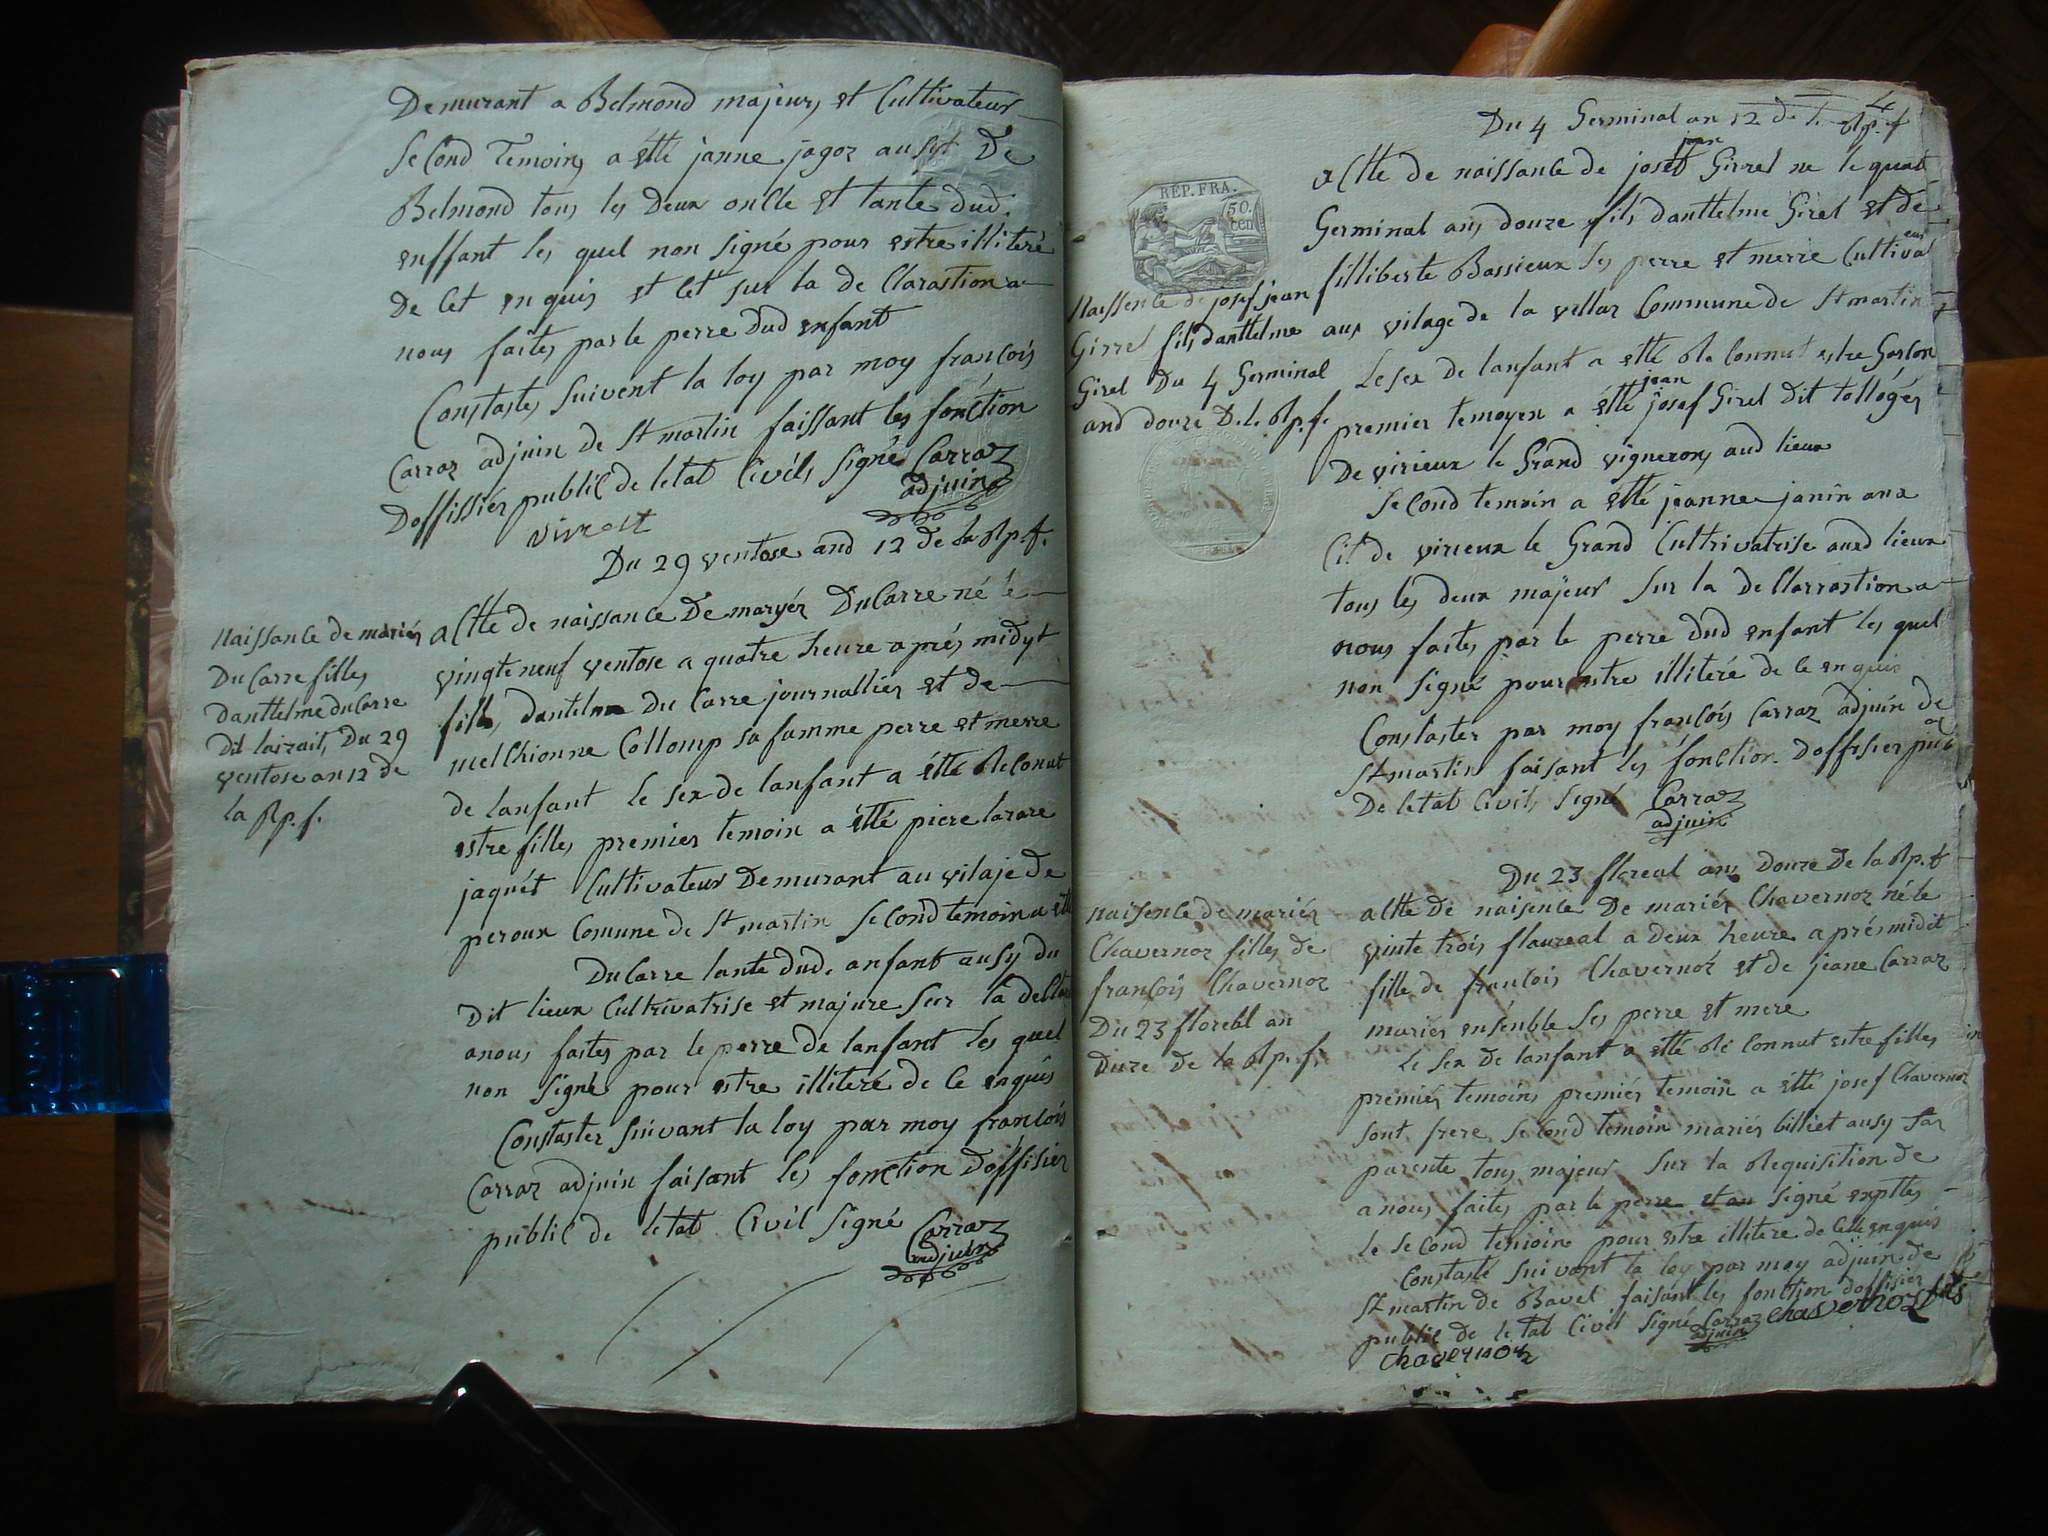 Demurant a Belmond majeurs et Cultivateur
Second Temoins a etté janne jagoz ausyt De
Belmond tous les Deux oncle et tante dud.
enffant les quel non signé pour estre illiteré
de Cet enquis et Cet sur la de Clarastion a
nous faites par le perre dud enfant
Constastes suivent la loy par moy francois
Carraz adjuin de St martin faissant les fonction
Doffissier public de letat Civils signé Carraz
adjuin
vivrolt
Du 29 ventose and 12 de la Rp. f.
Naissance de mariér
Du Carre filles
danttelme du Carre
Dit lairait, Du 29
ventose an 12 de
la Rp. f.
aCtte de naissance De maryér DuCarre né le
vingtneuf ventose a quatre heure aprés midyt
fills dantelme Du Carre journallier et de
melchionne Collomp sa famme perre et merre
de lanfant le sex de lanfant a etté ReConut
estre filles premier temoin a étté piere larare
jaquét Cultivateur Demurant au vilaje de
peroux Comune de St martin second temoin a etté
DuCarre tante dud. anfant ausy du
Dit lieux Cultrivatrise et majure sur la decllar
anous faites par le perre de lanfant les quel
non signé pour estre illiteré de Ce enquis
Constaster suivant la loy par moy francois
Carraz adjuin faisant les fonction doffisier
public de letat Civil signé Carraz
adjuin
4
Du 4 Germinal an 12 de l. Rp. f
REP. FRA.
50.
cen
jean
aCtte de naissance de josef Girrel ne le quatr
Germinal ans douze fils danttelme Girel et de
filliberte Bassieux ses perre et merre Cultivateur
aux vilage de la vellaz Commune de St martin
Naissence de josef jean
Girrel fils danttelme
Girel Du 4 Germinal
and douze D. l. Rp. f.
Le sex de lanfant a etté Re Connut estre Garson
jean
premier temoyen a etté josef Girel dit tollogér
De virieux le Grand vignerons aud lieux
Second temoin a étté jeanne janin aux
Cit de virieux le Grand Cultrivatrise aud lieux
tous les deux majeur sur la de Clarrastion a
nous faites par le perre dud enfant les quel
non signé pour estre illiteré de Ce enquis
Constaster par moy francois Carraz adjuin de
St martin faisant les fonction doffisier public
De letat Civil, signé Carraz
adjuin
Du 23 floreal ans Douze De la Rp. f
Naisence de mariér
Chavernoz filles de
françois Chavernoz
Du 23 florebl an
Duze de la Rp. f.
aCtte De naisence De mariér Chavernoz né le
vinte trois flaureal a Deux heure a prés midit
fille de francois Chavernoz et de jeane Carraz
mariér ensenble ses perre et mere
Le sex de lanfant a etté Re Connut estre filles
premiér temoins premiér temoin a étté josef Chavernoz
sont frere second temoin marier billiet ausy sar
parente tous majeur sur la Requisition de
a nous faites par le perre et au signé exptles
le second temoins pour estre illitere de Celle enquis
Constasté suivant la loy par moy adjuin de
St martin de Bavel faisant les fonction doffisier
public de le tat Civil signé Carraz Chavernoz fils
adjuin
Chavernoz